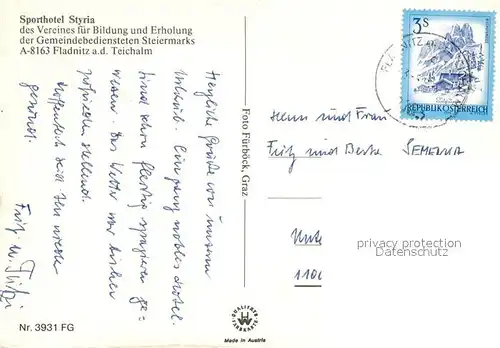 Sporthotel Styria
des Vereines für Bildung und Erholung
der Gemeindebediensteten Steiermarks
A-8163 Fladnitz a.d. Teichalm
Herzliche Grüße von unserem
Urlaub. Ein ganz nobles Hotel.
Sind schon fleißig spazieren ge=
wesen. Das Wetter war bisher
zufriedenstellend.
Hoffentlich seid Ihr wieder
gesund.
Fritz u. Fritzi
Foto Fürböck, Graz
3S
REPUBLIK ÖSTERREICH
FLADNITZ
Herrn und Frau
Fritz und Berta SEMERNA
Unte
1100
privacy protection
Datenschutz
QUALITÄTS
Nr. 3931 FG
Made in Austria